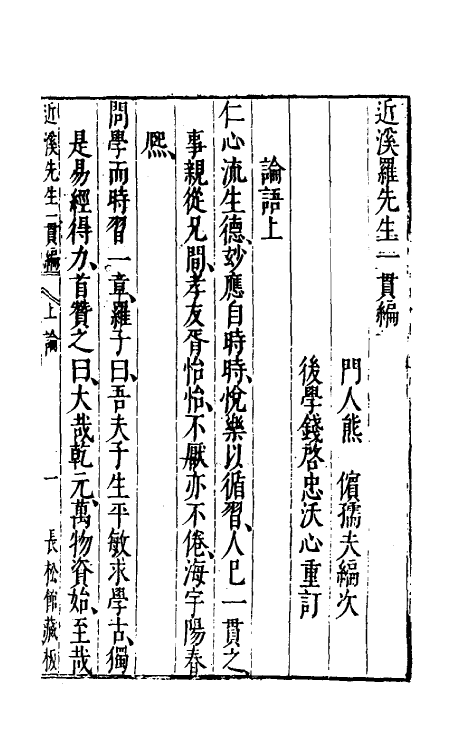 近溪羅先生一貫編
門人熊 儐孺夫編次
後學錢啓忠沃心重訂
論語上
仁心流生德、妙應自時時、悅樂以循習、人已一貫之、
事親從兄間、孝友胥怡怡、不厭亦不倦、海宇陽春
熈、
問學而時習一章、羅子曰、吾夫子生平敏求學古、獨
是易經得力、首贊之曰、大哉乾元、萬物資始、至哉
近溪先生一貫編 上論 一 長松館藏板